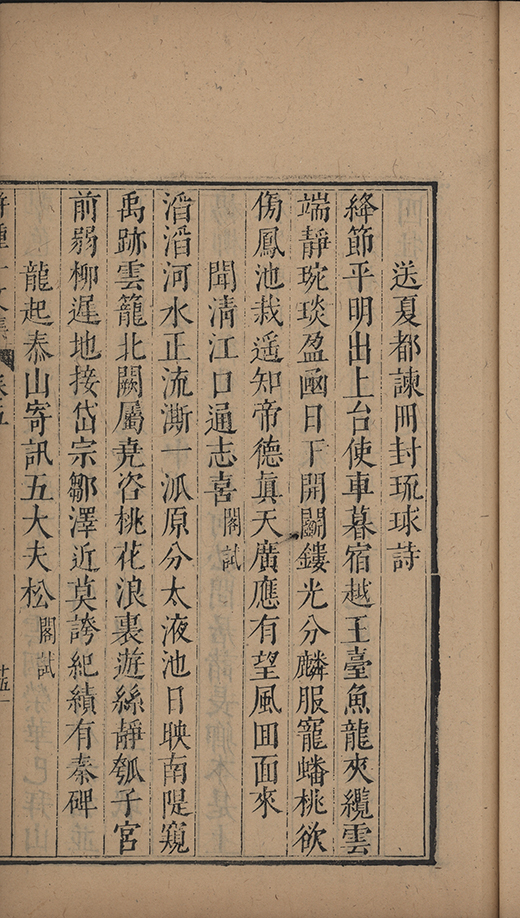 送夏都諫冊封琉球詩
絳節平明出上台使車暮宿越王臺魚龍夾纜雲
端靜琬琰盈凾日下開鬬鏤光分麟服寵蟠桃欲
傍鳳池栽遥知帝德眞天廣應有望風囬面來
聞清江口通志喜閣試
滔滔河水正流澌一派原分太液池日映南隄窺
禹跡雲籠北闕屬堯咨桃花浪裏遊絲靜瓠子宮
前弱柳遲地接岱宗鄒澤近莫誇紀績有秦碑
龍起泰山寄訊五大夫松閣試
十五